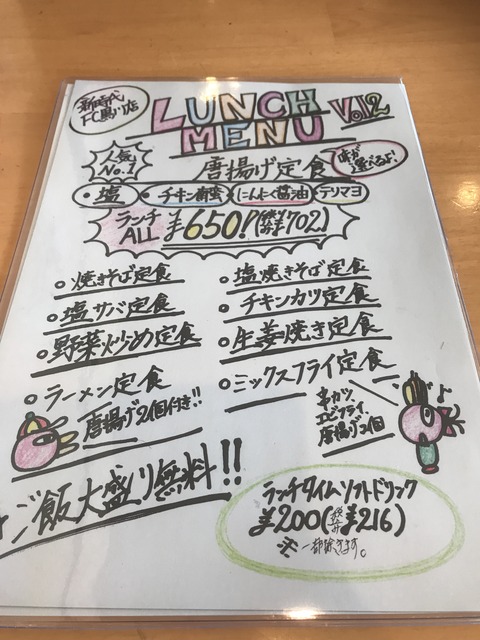 新時代
FC黒川店
LUNCH
MENU
Vol2
人気
No.1
唐揚げ定食
味が
選べるよ!
・塩
・チキン南蛮
・にんにく醤油
・テリマヨ
ランチ
ALL
¥650!(税込¥702)
○焼きそば定食
○塩焼きそば定食
○塩サバ定食
○チキンカツ定食
○野菜炒め定食
○生姜焼き定食
○ラーメン定食
唐揚げ2個付き!!
○ミックスフライ定食
串カツ、
エビフライ、
唐揚げ2個
ご飯大盛り無料!!
ランチタイムソフトドリンク
¥200(税込¥216)
※一部除きます。